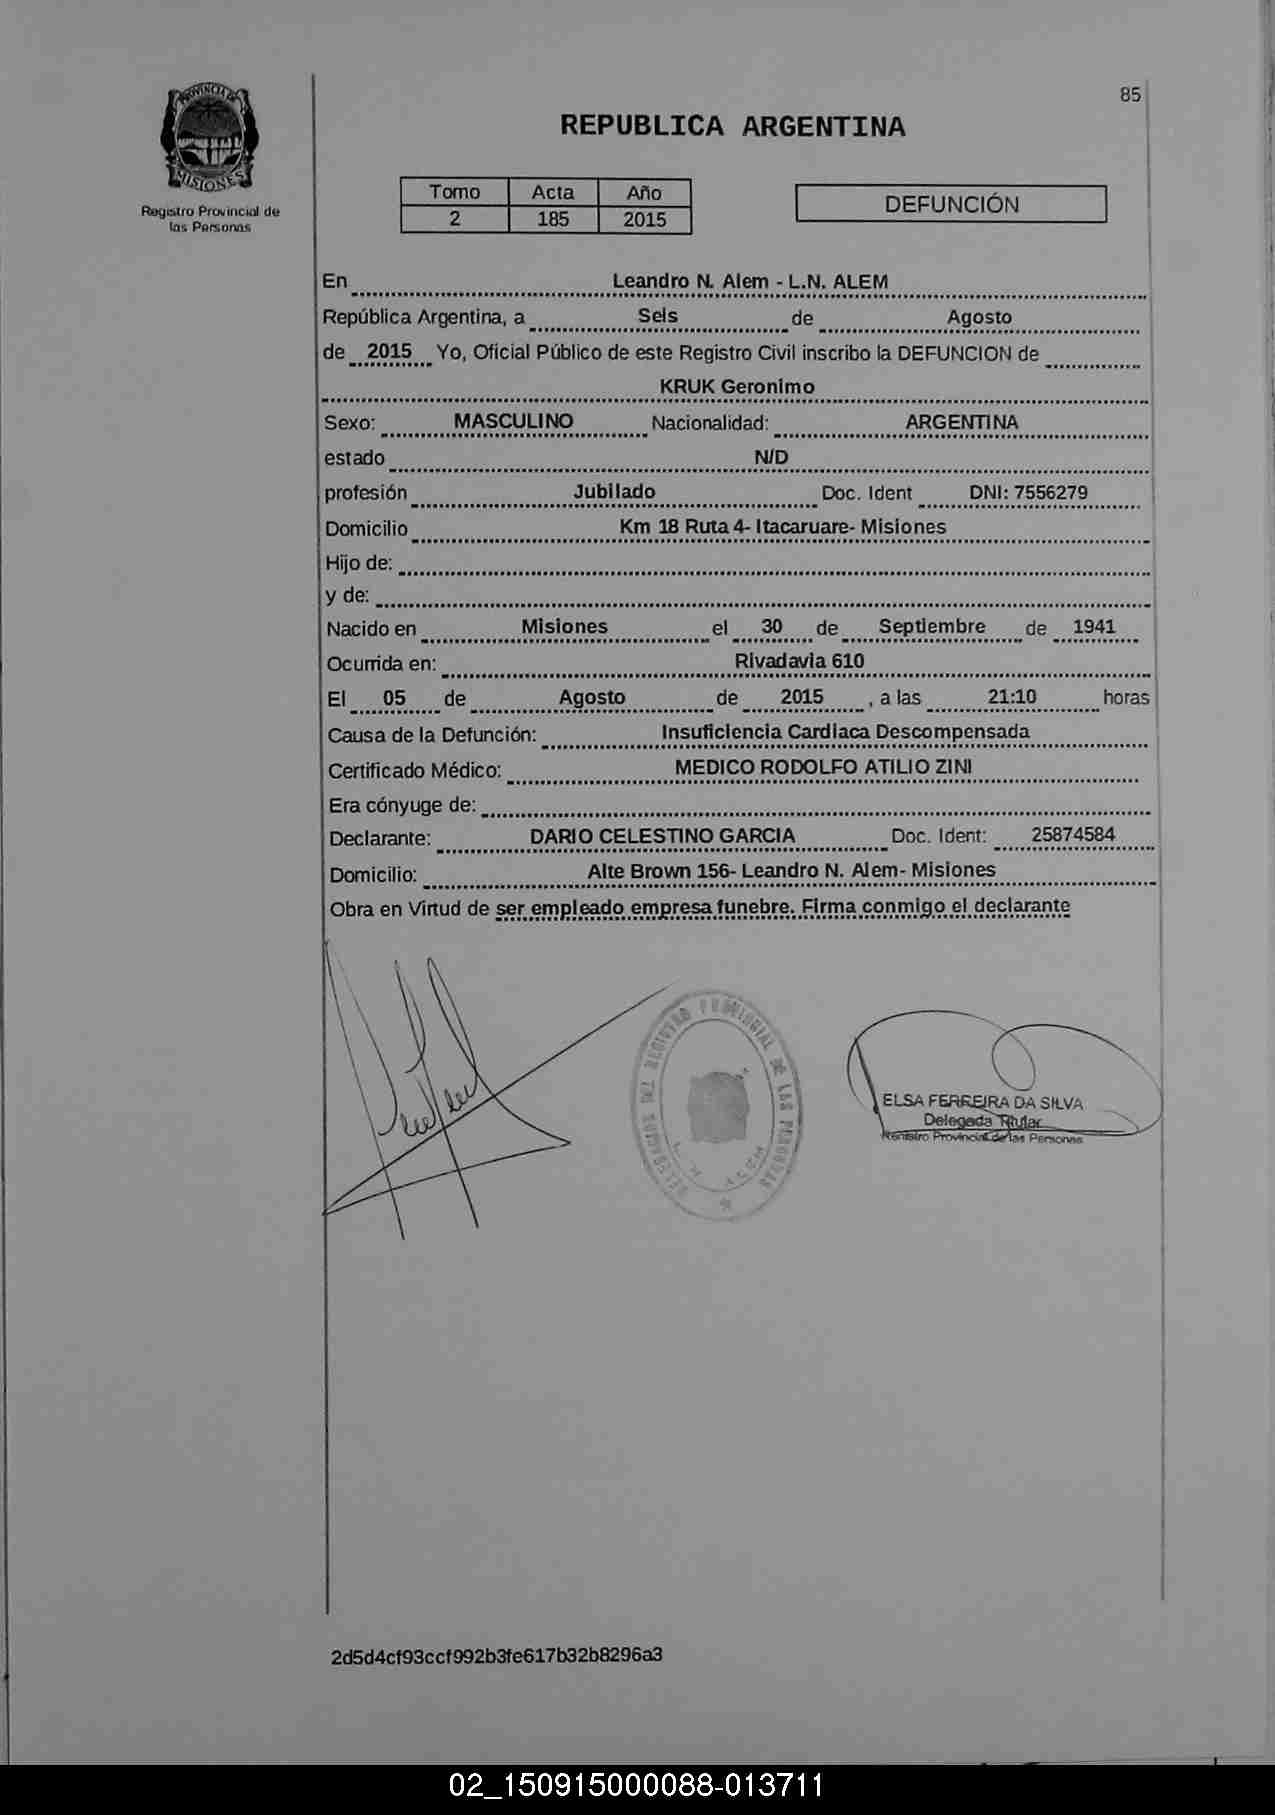 85
PROVINCIA DE
MISIONES
Registro Provincial de
las Personas
REPUBLICA ARGENTINA
Tomo Acta Año
2 185 2015
DEFUNCIÓN
En Leandro N. Alem - L.N. ALEM
República Argentina, a Seis de Agosto
de 2015 Yo, Oficial Público de este Registro Civil inscribo la DEFUNCION de
KRUK Geronimo
Sexo: MASCULINO Nacionalidad: ARGENTINA
estado N/D
profesión Jubilado Doc. Ident DNI: 7556279
Domicilio Km 18 Ruta 4- Itacaruare- Misiones
Hijo de:
y de:
Nacido en Misiones el 30 de Septiembre de 1941
Ocurrida en: Rivadavia 610
El 05 de Agosto de 2015 , a las 21:10 horas
Causa de la Defunción: Insuficiencia Cardiaca Descompensada
Certificado Médico: MEDICO RODOLFO ATILIO ZINI
Era cónyuge de:
Declarante: DARIO CELESTINO GARCIA Doc. Ident: 25874584
Domicilio: Alte Brown 156- Leandro N. Alem- Misiones
Obra en Virtud de ser empleado empresa funebre. Firma conmigo el declarante
REGISTRO PROVINCIAL DE LAS PERSONAS
ELSA FERREIRA DA SILVA
Delegada Titular
Registro Provincial de las Personas
2d5d4cf93ccf992b3fe617b32b8296a3
02_150915000088-013711